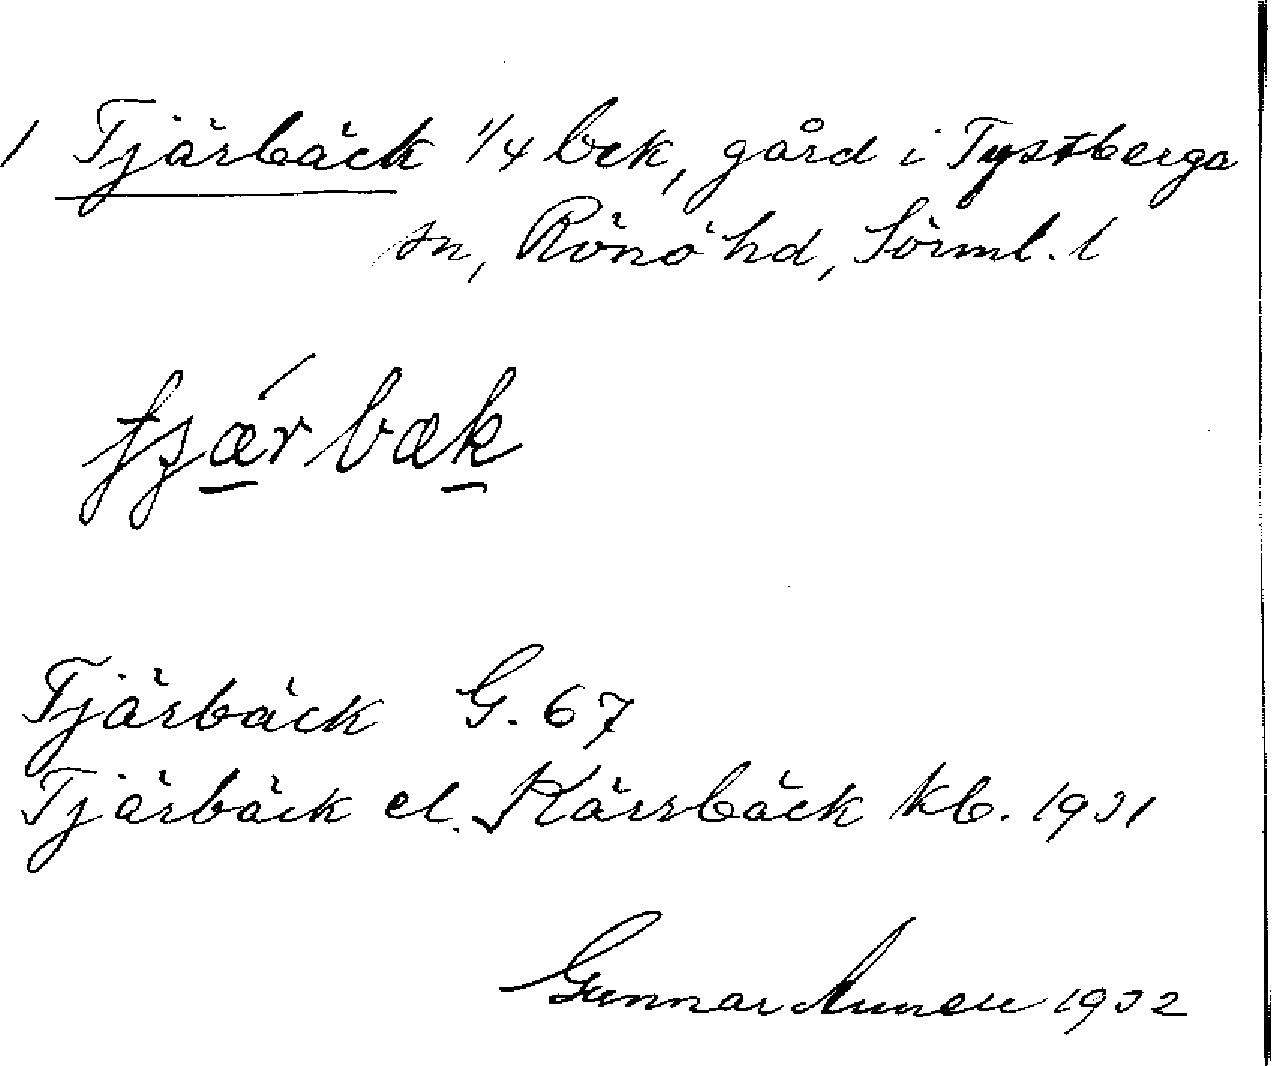 1 Tjärbäck 1/4 bck, gård i Tystberga
sn, Rönö hd, Sörml. l
Tjärbäck G. 67
Tjärbäck el. Kärrbäck kb. 1931
Gunnar 1932